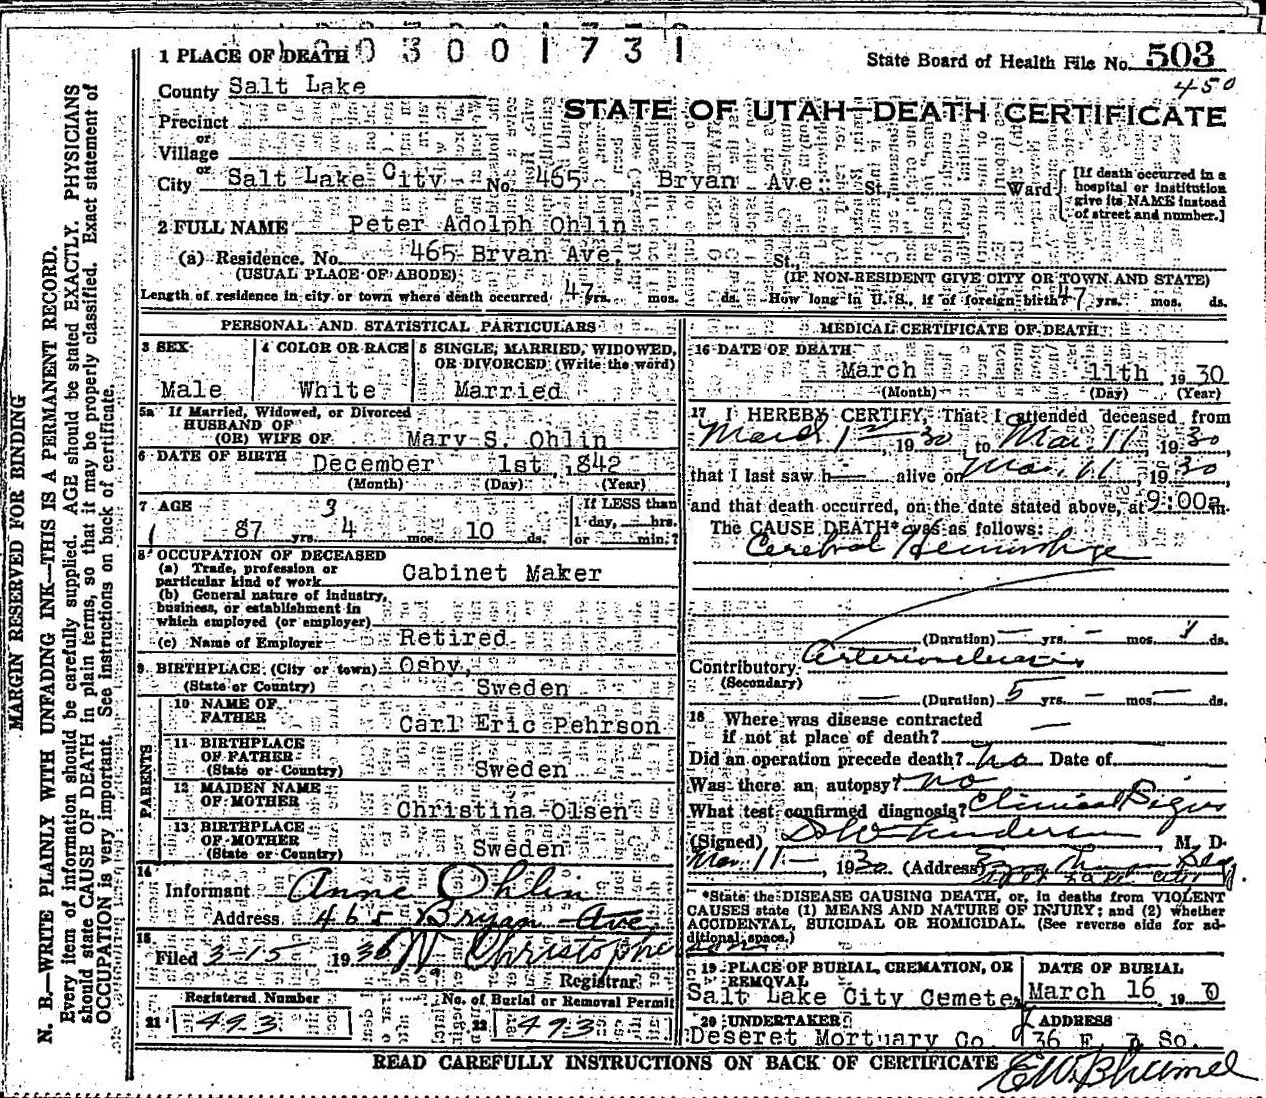 003001731
1 PLACE OF DEATH
State Board of Health File No. 503
450
County Salt Lake
STATE OF UTAH—DEATH CERTIFICATE
Precinct
or
Village
or
City Salt Lake City No. 465 Bryan Ave. St., Ward
[If death occurred in a
hospital or institution
give its NAME instead
of street and number.]
2 FULL NAME Peter Adolph Ohlin
(a) Residence. No. 465 Bryan Ave. St.
(USUAL PLACE OF ABODE) (IF NON-RESIDENT GIVE CITY OR TOWN AND STATE)
Length of residence in city or town where death occurred 47 yrs. mos. ds. How long in U. S., if of foreign birth? 47 yrs. mos. ds.
PERSONAL AND STATISTICAL PARTICULARS
3 SEX
Male
4 COLOR OR RACE
White
5 SINGLE, MARRIED, WIDOWED,
OR DIVORCED (Write the word)
Married
5a If Married, Widowed, or Divorced
HUSBAND OF
(OR) WIFE OF Mary S. Ohlin
6 DATE OF BIRTH December 1st, 1842
(Month) (Day) (Year)
7 AGE
3
87 yrs. 4 mos. 10 ds.
If LESS than
1 day, hrs.
or min.?
8 OCCUPATION OF DECEASED
(a) Trade, profession or
particular kind of work Cabinet Maker
(b) General nature of industry,
business, or establishment in
which employed (or employer)
(c) Name of Employer Retired
9 BIRTHPLACE (City or town) Osby,
(State or Country) Sweden
PARENTS
10 NAME OF
FATHER Carl Eric Pehrson
11 BIRTHPLACE
OF FATHER
(State or Country) Sweden
12 MAIDEN NAME
OF MOTHER Christina Olsen
13 BIRTHPLACE
OF MOTHER
(State or Country) Sweden
14
Informant Anne Ohlin
Address 465 Bryan Ave
15
Filed 3-15 1930 W. Christopherson
Registrar
Registered Number
21 493
No. of Burial or Removal Permit
22 493
MEDICAL CERTIFICATE OF DEATH
16 DATE OF DEATH
March 11th 1930
(Month) (Day) (Year)
17 I HEREBY CERTIFY, That I attended deceased from
March 1st, 1930, to Mar. 11 1930
that I last saw h alive on Mar. 11, 1930
and that death occurred, on the date stated above, at 9:00a m.
The CAUSE DEATH* was as follows:
Cerebral Hemorrhage
(Duration) — yrs. — mos. 1 ds.
Contributory Arteriosclerosis
(Secondary)
(Duration) 5 yrs. — mos. — ds.
18 Where was disease contracted
if not at place of death? —
Did an operation precede death? no Date of
Was there an autopsy? no
What test confirmed diagnosis? Clinical Signs
(Signed) , M. D.
Mar. 11— , 1930 (Address)
*State the DISEASE CAUSING DEATH, or, in deaths from VIOLENT
CAUSES state (1) MEANS AND NATURE OF INJURY; and (2) whether
ACCIDENTAL, SUICIDAL OR HOMICIDAL. (See reverse side for ad-
ditional space.)
19 PLACE OF BURIAL, CREMATION, OR
REMOVAL
Salt Lake City Cemete
DATE OF BURIAL
March 16 , 19 0
20 UNDERTAKER
Deseret Mortuary Co.
ADDRESS
36 E. 7 So.
READ CAREFULLY INSTRUCTIONS ON BACK OF CERTIFICATE
MARGIN RESERVED FOR BINDING
N. B.—WRITE PLAINLY WITH UNFADING INK—THIS IS A PERMANENT RECORD.
Every item of information should be carefully supplied. AGE should be stated EXACTLY. PHYSICIANS
should state CAUSE OF DEATH in plain terms, so that it may be properly classified. Exact statement of
OCCUPATION is very important. See instructions on back of certificate.